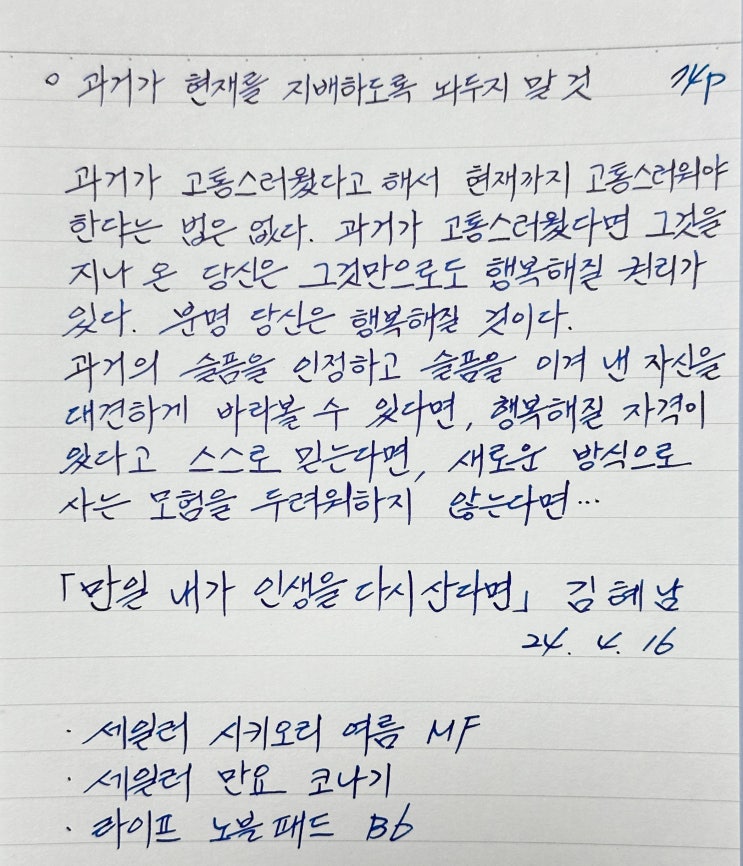 ○ 과거가 현재를 지배하도록 놔두지 말 것 74p
과거가 고통스러웠다고 해서 현재까지 고통스러워야
한다는 법은 없다. 과거가 고통스러웠다면 그것을
지나 온 당신은 그것만으로도 행복해질 권리가
있다. 분명 당신은 행복해질 것이다.
과거의 슬픔을 인정하고 슬픔을 이겨 낸 자신을
대견하게 바라볼 수 있다면, 행복해질 자격이
있다고 스스로 믿는다면, 새로운 방식으로
사는 모험을 두려워하지 않는다면…
「만일 내가 인생을 다시 산다면」 김혜남
24. 4. 16
· 세일러 시키오리 여름 MF
· 세일러 만요 코나기
· 라이프 노블패드 B6